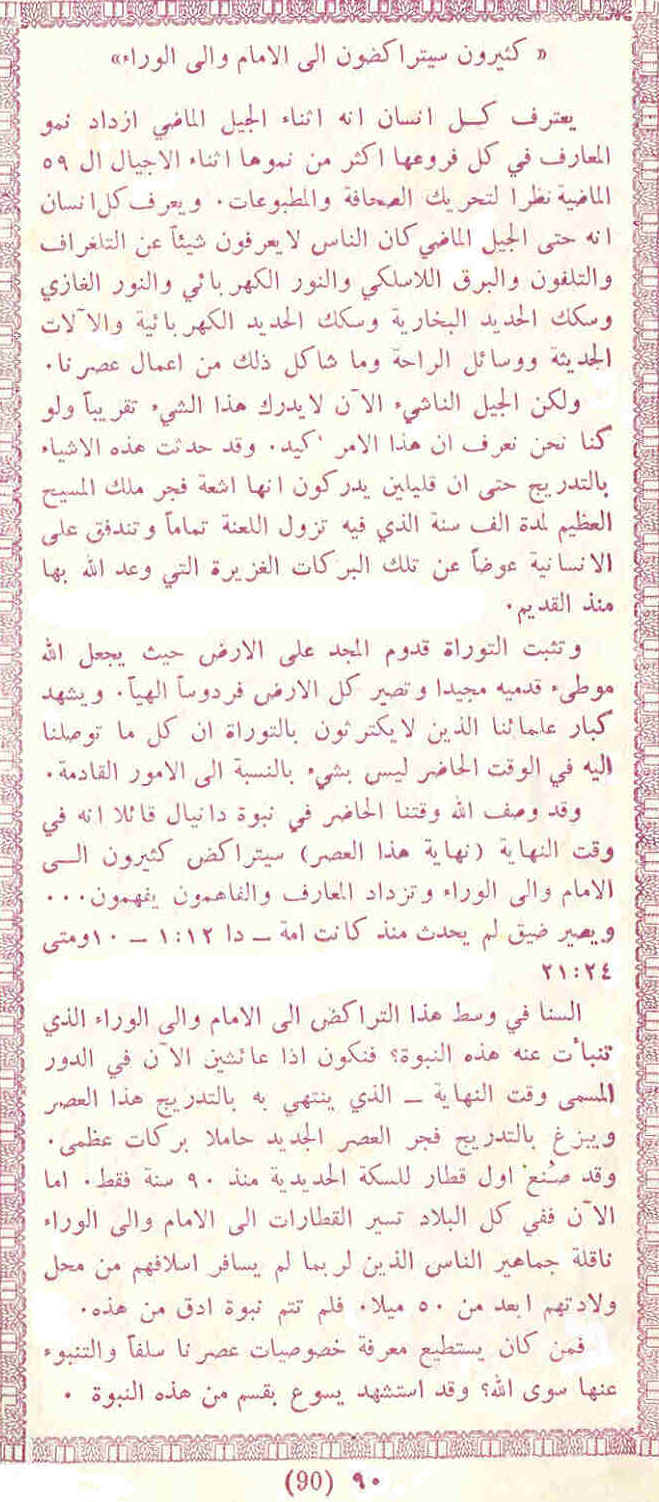 « كثيرون سيتراكضون الى الامام والى الوراء»
يعترف كـل انسان انه اثناء الجيل الماضي ازداد نمو
المعارف في كل فروعها اكثر من نموها اثناء الاجيال ال ٥٩
الماضية نظرا لتحريك الصحافة والمطبوعات. ويعرف كل انسان
انه حتى الجيل الماضي كان الناس لا يعرفون شيئاً عن التلغراف
والتلفون والبرق اللاسلكي والنور الكهربائي والنور الغازي
وسكك الحديد البخارية وسكك الحديد الكهربائية والآلات
الحديثة ووسائل الراحة وما شاكل ذلك من اعمال عصرنا.
ولكن الجيل الناشيء الآن لا يدرك هذا الشيء تقريباً ولو
كنا نحن نعرف ان هذا الامر كيد. وقد حدثت هذه الاشياء
بالتدريج حتى ان قليلين يدركون انها اشعة فجر ملك المسيح
العظيم لمدة الف سنة الذي فيه تزول اللعنة تماماً وتندفق على
الانسانية عوضاً عن تلك البركات الغزيرة التي وعد الله بها
منذ القديم.
وتثبت التوراة قدوم المجد على الارض حيث يجعل الله
موطىء قدميه مجيدا وتصير كل الارض فردوساً الهياً. ويشهد
كبار علمائنا الذين لا يكترثون بالتوراة ان كل ما توصلنا
اليه في الوقت الحاضر ليس بشيء بالنسبة الى الامور القادمة.
وقد وصف الله وقتنا الحاضر في نبوة دانيال قائلا انه في
وقت النهاية (نهاية هذا العصر) سيتراكض كثيرون الـى
الامام والى الوراء وتزداد المعارف والفاهمون يفهمون...
ويصير ضيق لم يحدث منذ كانت امة ــ دا ١:١٢ ــ ١٠ ومتى
٢١:٢٤
السنا في وسط هذا التراكض الى الامام والى الوراء الذي
تنبأت عنه هذه النبوة؟ فنكون اذا عائشين الآن في الدور
المسمى وقت النهاية ــ الذي ينتهي به بالتدريج هذا العصر
ويبزغ بالتدريج فجر العصر الجديد حاملا بركات عظمى.
وقد صُنع اول قطار للسكة الحديدية منذ ٩٠ سنة فقط. اما
الآن ففي كل البلاد تسير القطارات الى الامام والى الوراء
ناقلة جماهير الناس الذين لربما لم يسافر اسلافهم من محل
ولادتهم ابعد من ٥٠ ميلا. فلم تتم نبوة ادق من هذه.
فمن كان يستطيع معرفة خصوصيات عصرنا سلفاً والتنبوء
عنها سوى الله؟ وقد استشهد يسوع بقسم من هذه النبوة .
٩٠ (90)